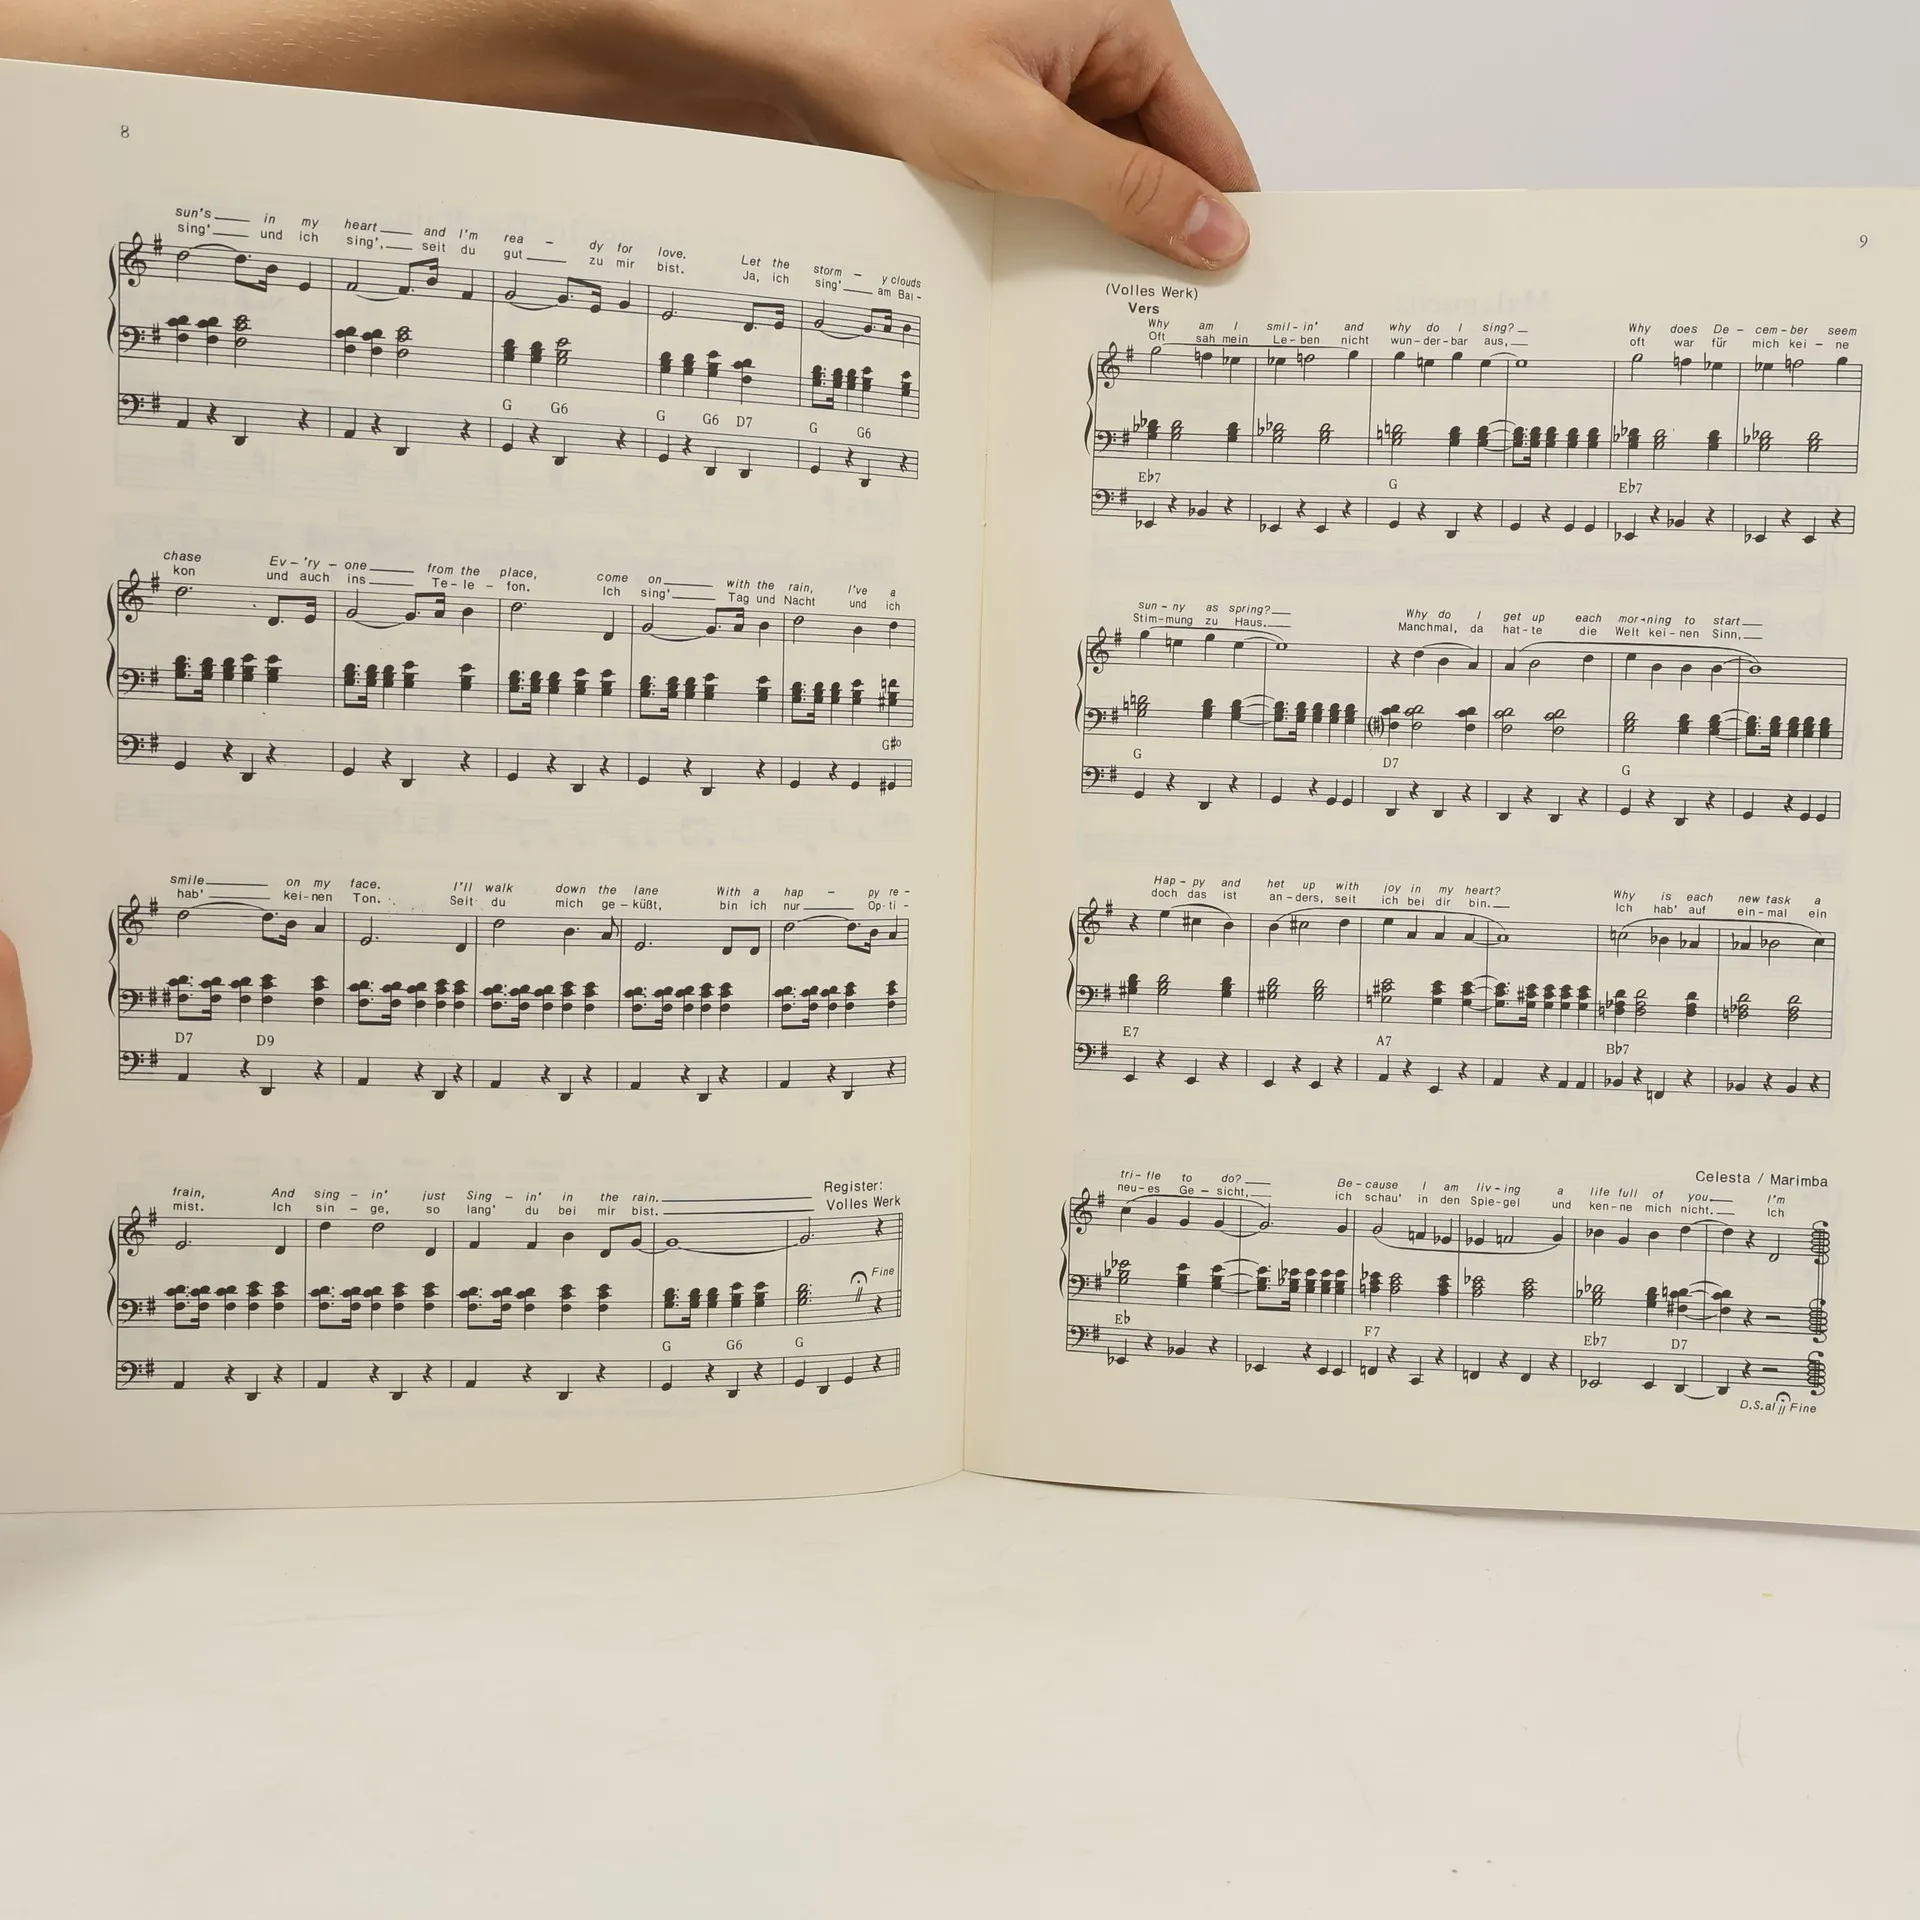 8
sun's in my heart and I'm rea - dy for love. Let the storm - y clouds
sing' und ich sing', seit du gut zu mir bist. Ja, ich sing' am Bal -
G G6 G G6 D7 G G6
chase Ev - 'ry - one from the place, come on with the rain, I've a
kon und auch ins Te - le - fon. Ich sing' Tag und Nacht und ich
G#o
smile on my face. I'll walk down the lane With a hap - py re -
hab' kei - nen Ton. Seit du mich ge - küßt, bin ich nur Op - ti -
D7 D9
Register:
Volles Werk
frain, And sing - in' just Sing - in' in the rain.
mist. Ich sin - ge, so lang' du bei mir bist.
Fine
G G6 G
9
(Volles Werk)
Vers
Why am I smil - in' and why do I sing? Why does De - cem - ber seem
Oft sah mein Le - ben nicht wun - der - bar aus, oft war für mich kei - ne
Eb7 G Eb7
sun - ny as spring? Why do I get up each mor - ning to start
Stim - mung zu Haus. Manchmal, da hat - te die Welt kei - nen Sinn,
G D7 G
Hap - py and het up with joy in my heart? Why is each new task a
doch das ist an - ders, seit ich bei dir bin. Ich hab' auf ein - mal ein
E7 A7 Bb7
Celesta / Marimba
tri - fle to do? Be - cause I am liv - ing a life full of you. I'm
neu - es Ge - sicht, ich schau' in den Spie - gel und ken - ne mich nicht. Ich
Eb F7 Eb7 D7
D.S. al Fine